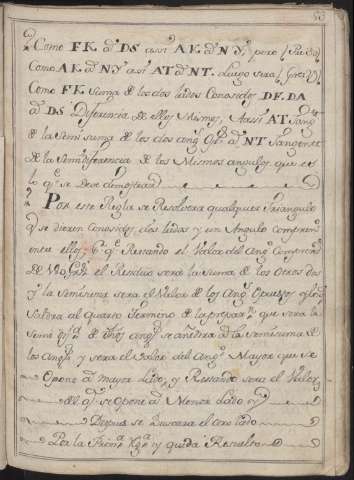 53
Como FK â DS assi AK â NY, pero
Como AK â NY assi AT â NT. Luego sera
Como FK suma de los dos lados Conosidos DF. DA
â DS Diferencia de ellos Mismos, Assi AT
de la Semisuma de los dos ang.s NT Tangente
de la Semidiferencia de los Mismos angulos que es
lo q.e se deve demostrar
Por esta Regla se Resolvera qualquier Triangulo
q.e se dieren Conosidos dos lados y un Angulo
entre ellos q.e Restando el Valor del Ang.o
de 180 el Residuo sera la Suma de los Otros dos
y la Semisuma sera el Valor de los Ang.s Opuestos
Saldra al Quarto Termino que sera la
Semi de d.hos ang.s se añadira â la Semisuma de
los Ang.s y sera el Valor del Ang.o Mayor que se
Opone al mayor lado, y Restando sera el Valor
del q.e se Opone al Menor lado
Despues se Buscara el otro lado
Por la Prim.a y queda Resuelto